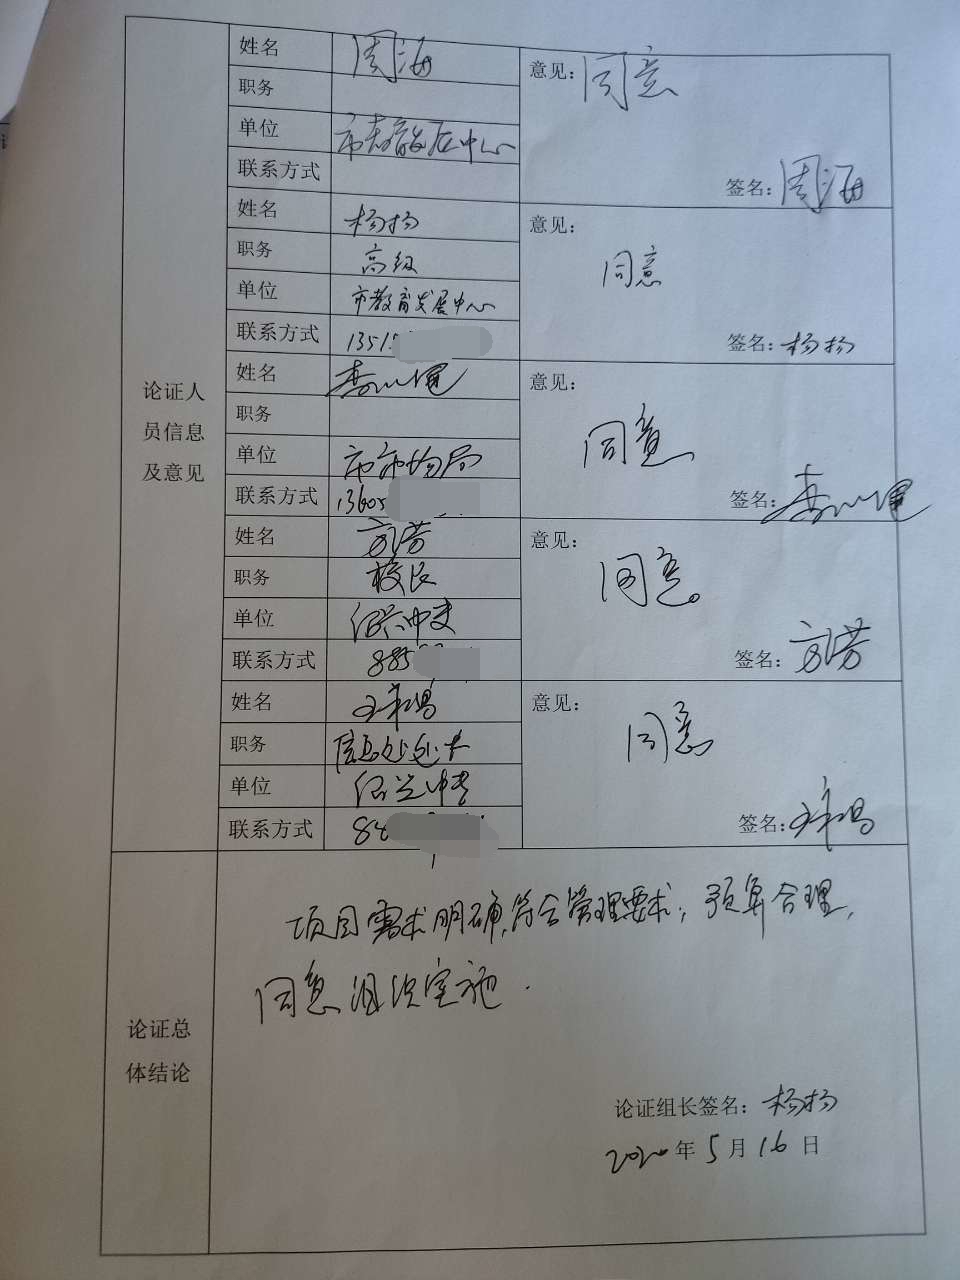 姓名 周海
意见: 同意
职务
单位 市教育发展中心
联系方式
签名: 周海
姓名 杨扬
意见:
同意
职务 高级
单位 市教育发展中心
联系方式 1351
签名: 杨扬
姓名
意见:
同意
职务
单位
联系方式 13605
签名:
姓名 方芳
意见:
同意。
职务 校长
单位 绍兴中专
联系方式 885
签名: 方芳
姓名
意见:
同意
职务
单位 绍兴中专
联系方式 88
签名:
论证人
员信息
及意见
项目需求明确,符合管理要求;预算合理,
同意组织实施.
论证总
体结论
论证组长签名: 杨扬
2020年5月16日